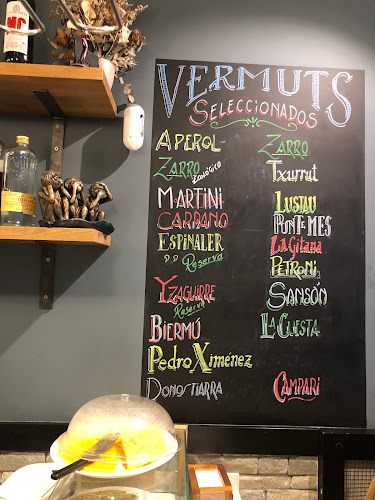 VERMUTS
SELECCIONADOS
APEROL
ZARRO
MARTINI
CARPANO
ESPINALER
" Reserva
YZAGUIRRE
Reserva
BIERMÚ
PEDRO XIMÉNEZ
DONOSTIARRA
ZARRO
Txurrut
LUSTAU
PUNT MES
LA GITANA
PETRONI
SANSÓN
LA CUESTA
CAMPARI